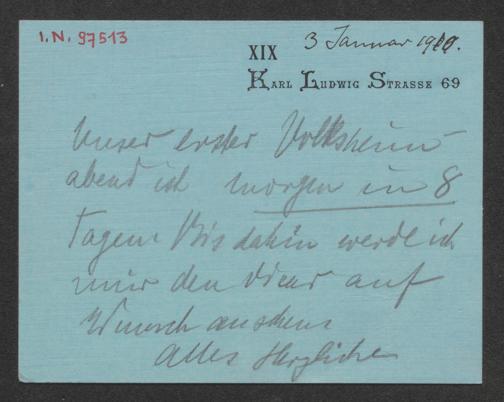 I.N. 97513
3 Januar 1910.
XIX
Karl Ludwig Strasse 69
Unser erster Volksheim-
abend ist morgen in 8
Tagen. Bis dahin werde ich
mir den auf
Wunsch ansehen
Alles Herzliche